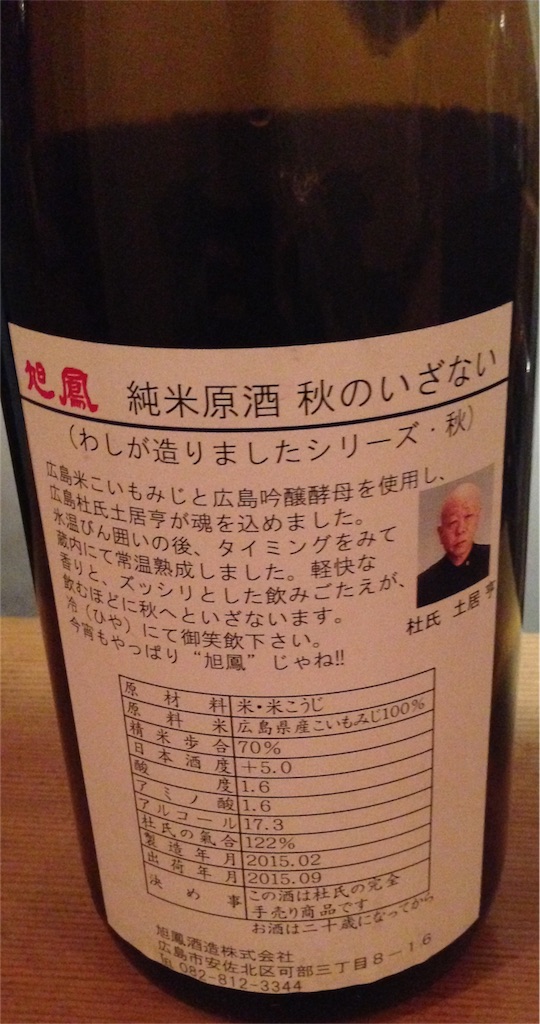 旭鳳 純米原酒 秋のいざない
（わしが造りましたシリーズ・秋）
広島米こいもみじと広島吟醸酵母を使用し、
広島杜氏土居亨が魂を込めました。
氷温びん囲いの後、タイミングをみて
蔵内にて常温熟成しました。軽快な
香りと、ズッシリとした飲みごたえが、
飲むほどに秋へといざないます。
冷（ひや）にて御笑飲下さい。
今宵もやっぱり“旭鳳”じゃね!!
杜氏 土居 亨
原材料 米・米こうじ
原料米 広島県産こいもみじ100%
精米歩合 70%
日本酒度 +5.0
酸度 1.6
アミノ酸 1.6
アルコール 17.3
杜氏の氣合 122%
製造年月 2015.02
出荷年月 2015.09
決め事 この酒は杜氏の完全
手売り商品です
お酒は二十歳になってから
旭鳳酒造株式会社
広島市安佐北区可部三丁目8-16
℡082-812-3344